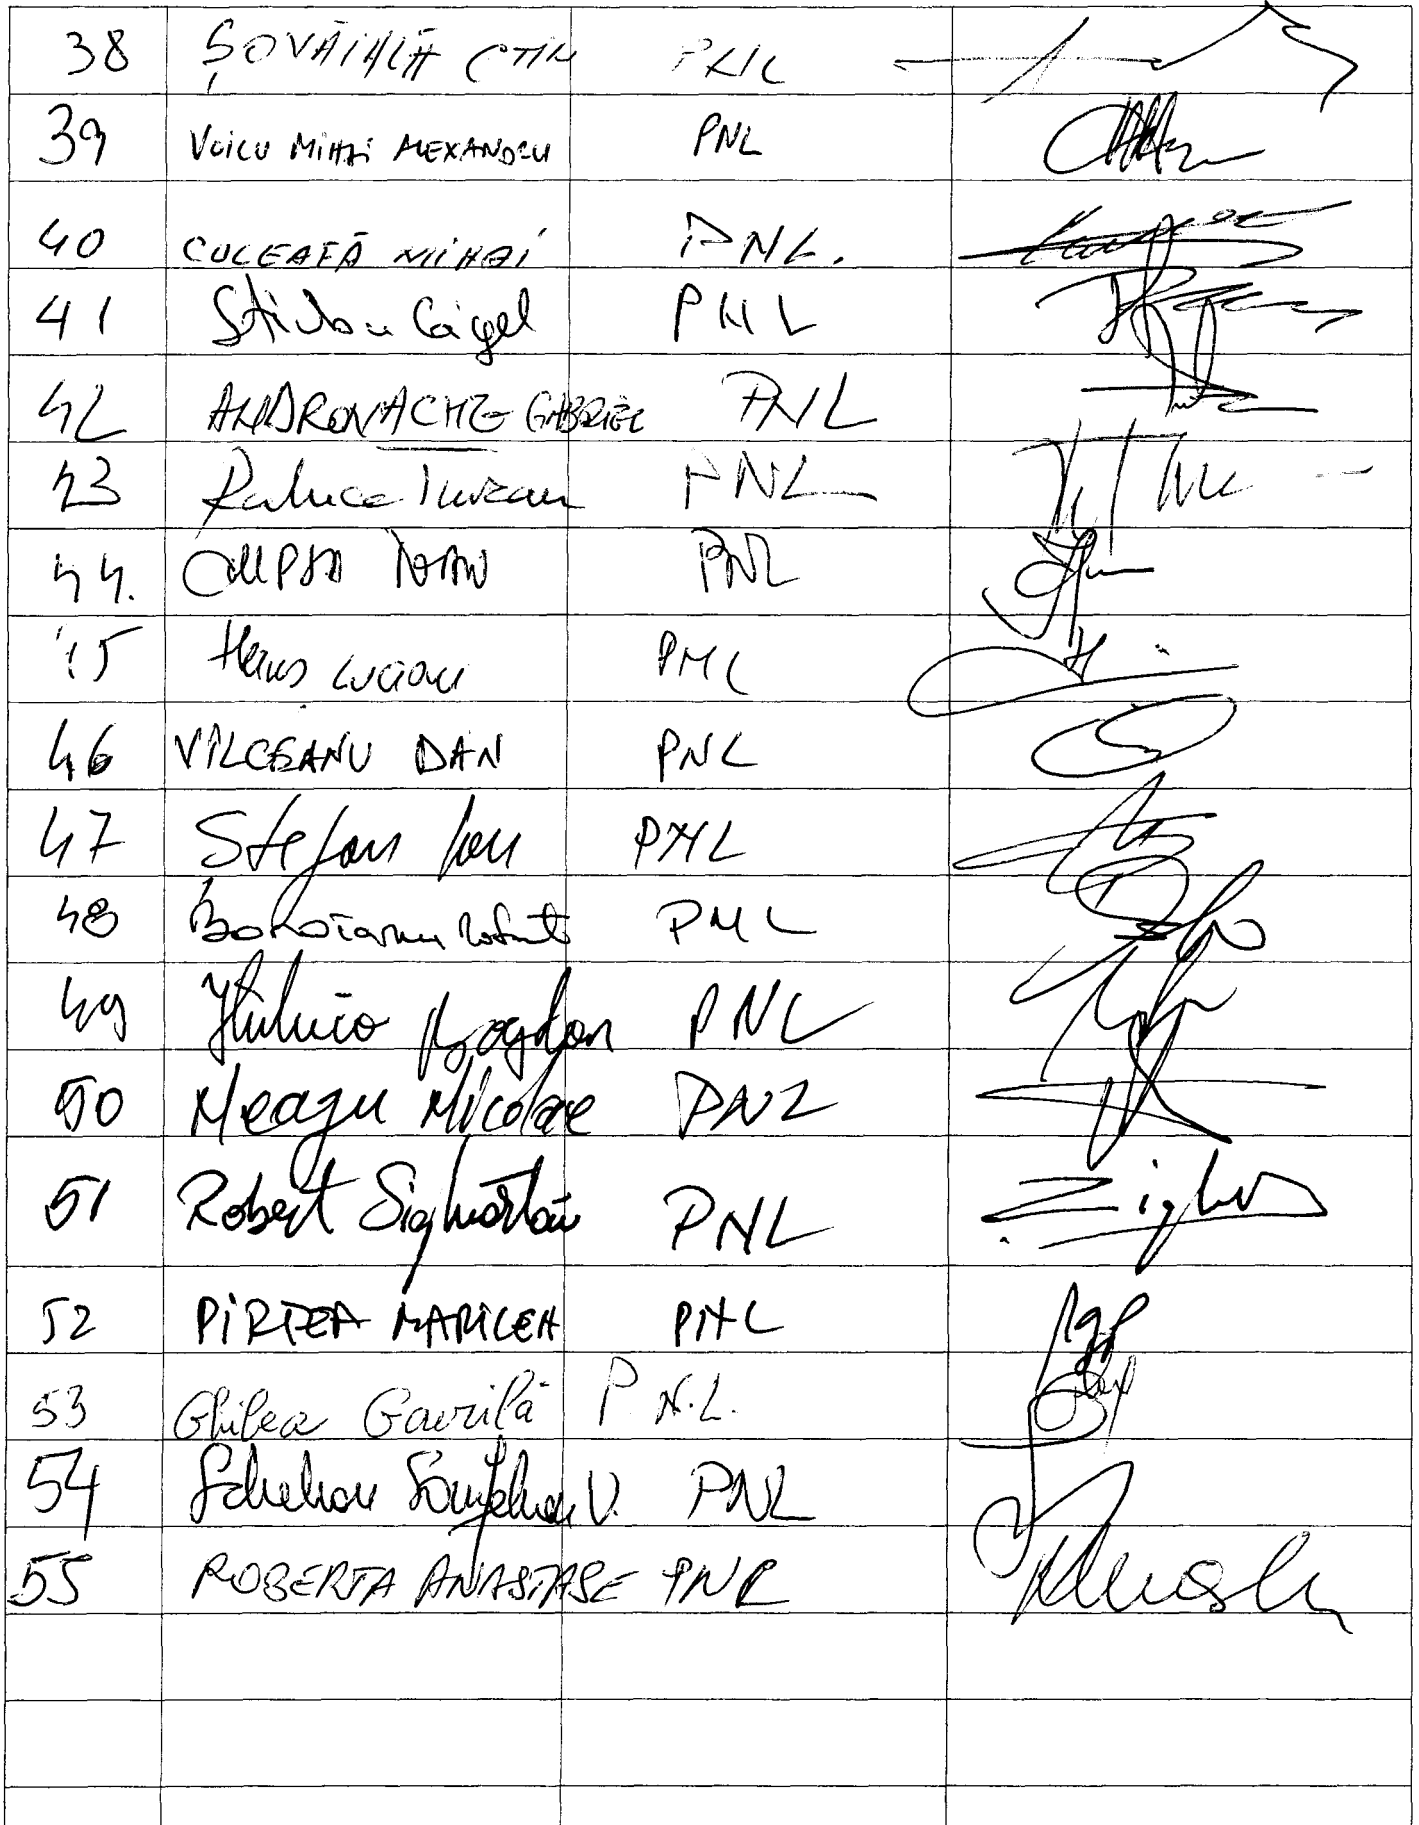 38 ȘOVĂIALĂ CTIN PNL
39 VOICU MIHAI ALEXANDRU PNL
40 CULEAFĂ MIHAI PNL.
41 Știrbu Gigel PNL
42 ANDRONACHE GABRIEL PNL
43 Raluca Turcan PNL
44. CUPȘA IOAN PNL
45 Heius Lucian PNL
46 VÎLCEANU DAN PNL
47 Ștefan Ion PNL
48 PNL
49 Huțucă Bogdan PNL
50 Neagu Nicolae PNL
51 Robert Sighiartău PNL
52 PIRTEA MARILEN PNL
53 Ghilea Gavrilă P.N.L.
54 V. PNL
55 ROBERTA ANASTASE PNL